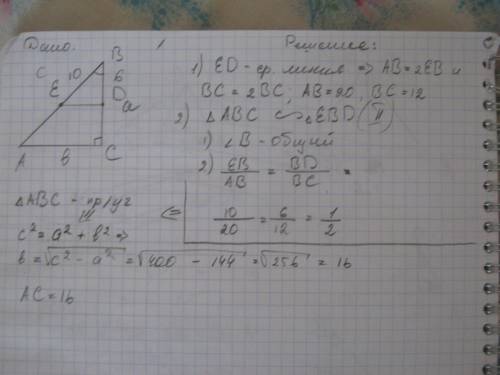 Дано.
Решение:
B
C 10 6
E D
a
A b C
1) ED - ср. линия => AB = 2EB и
BC = 2BC; AB = 20, BC = 12
2) △ABC ∽ △EBD (II)
1) ∠B - общий
2) EB/AB = BD/BC =
10/20 = 6/12 = 1/2
<=
△ABC - пр/уг
c² = a² + b² =>
b = √c² - a² = √400 - 144 = √256 = 16
AC = 16